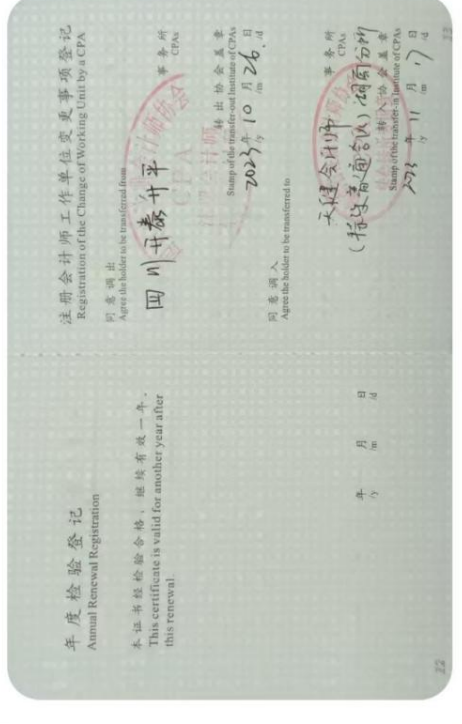 年度检验登记
Annual Renewal Registration
本证书经检验合格，继续有效一年。
This certificate is valid for another year after
this renewal.
年 月 日
/y /m /d
12
注册会计师工作单位变更事项登记
Registration of the Change of Working Unit by a CPA
同意调出
Agree the holder to be transferred from
四川开泰升平
事务所
CPAs
转出协会盖章
Stamp of the transfer-out Institute of CPAs
2023年10月26日
/y /m /d
同意调入
Agree the holder to be transferred to
天健会计师
(特殊普通合伙)湖南分所
事务所
CPAs
转入协会盖章
Stamp of the transfer-in Institute of CPAs
2023年11月17日
/y /m /d
13